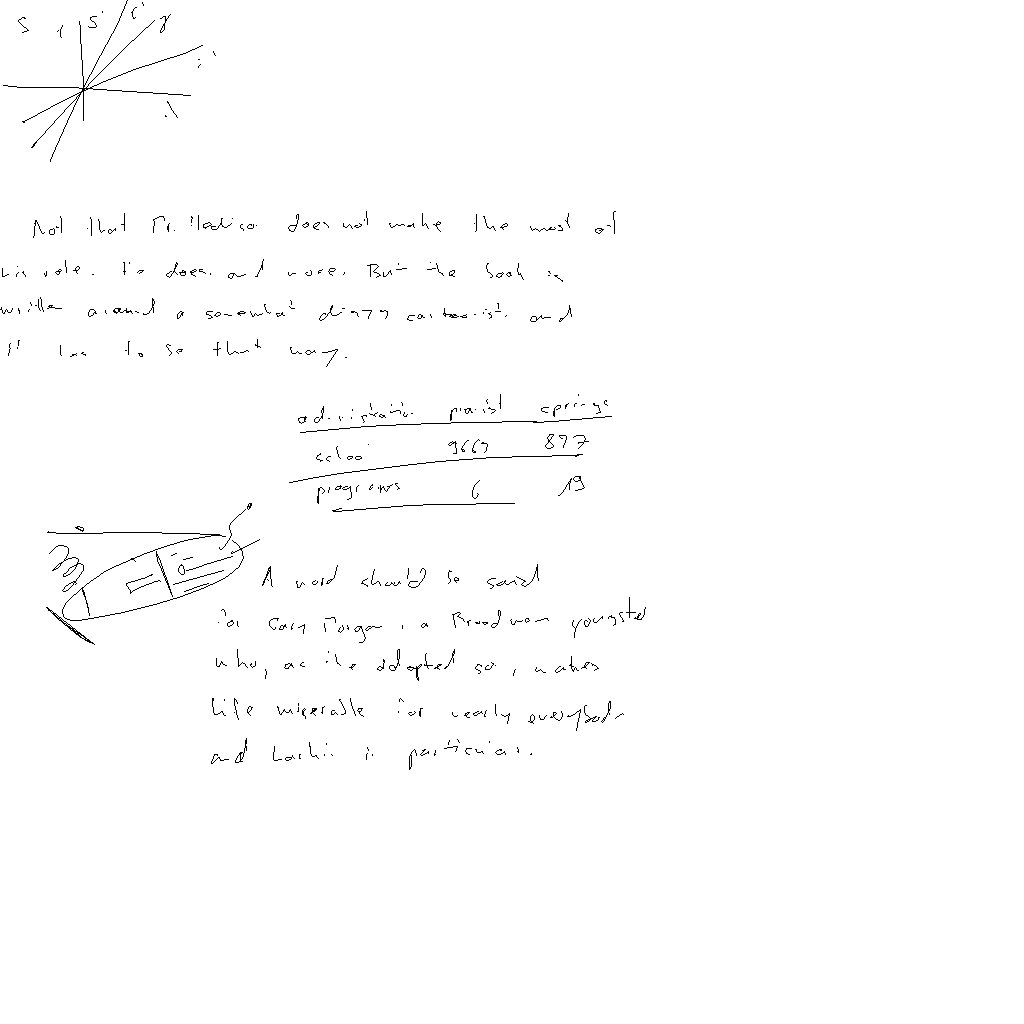 S S'
Not that Mr. Madison does not make the most of
his role. He does, and more. But the book is
written around a somewhat dizzy cartoonist and
it has to be that way.
administration pianist springs
school 9669 877
programs 6 19
A word should be said
for Gary Morgan, a Broadway youngster
who, as the adopted son, makes
life miserable for nearly everybody
and Larkin in particular.